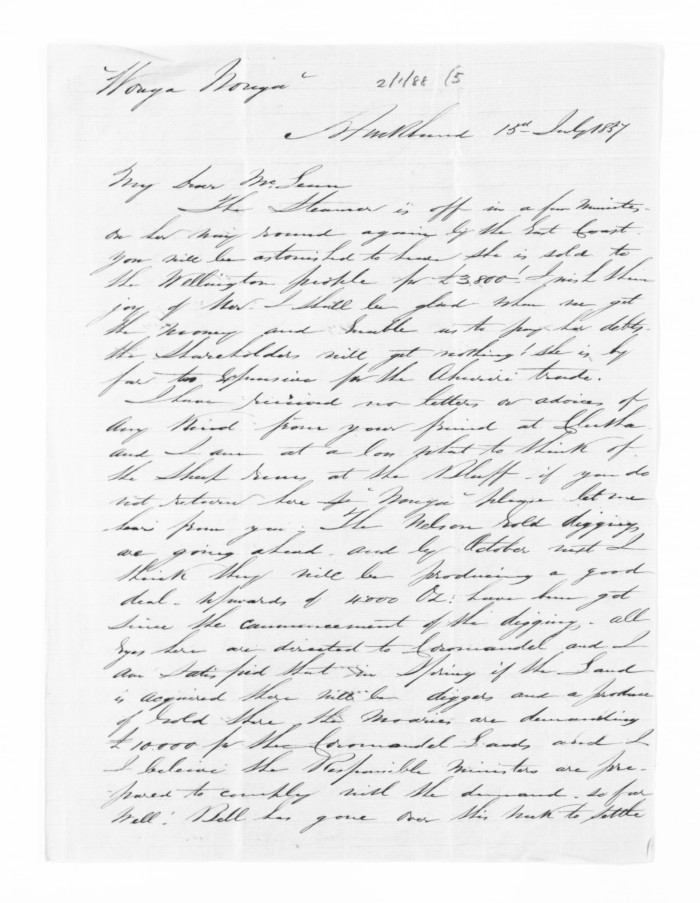 "Wonga Wonga" 2/1/88 (5
Auckland 15th July 1857
My dear McLean
The Steamer is off in a few minutes
on her way round again by the East Coast.
You will be astonished to hear she is sold to
the Wellington people for £3,800! I wish them
joy of her. I shall be glad when we get
the money and enable us to pay her debts,
the Shareholders will get nothing! She is by
far too expensive for the Ahuriri trade.
I have received no letters or advices of
any kind from your friend at Clutha
and I am at a loss what to think of
the Sheep runs at the Bluff - if you do
not return here p "Wonga" please let me
hear from you. The Nelson Gold diggings
are going ahead. and by October next I
think they will be producing a good
deal - Upwards of 4000 Oz: have been got
since the commencement of the digging. all
Eyes here are directed to Coromandel and I
am satisfied that in Spring if the Land
is acquired there will be diggers and a produce
of Gold there. the Maories are demanding
£10000 for the Coromandel Lands and I
I beleive the Responsible Ministers are pre-
pared to comply with the demand. so far
well! Bell has gone over this week to settle